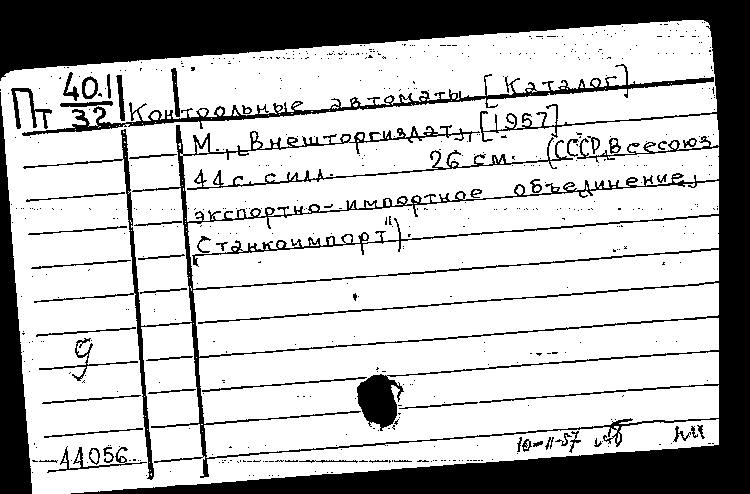 Пт 40.1/32 Контрольные автоматы. [Каталог].
М., „Внешторгиздат", [1957].
44 с. с илл. 26 см. (СССР. Всесоюз
экспортно-импортное объединение „
Станкоимпорт").
9
44056
10-II-57